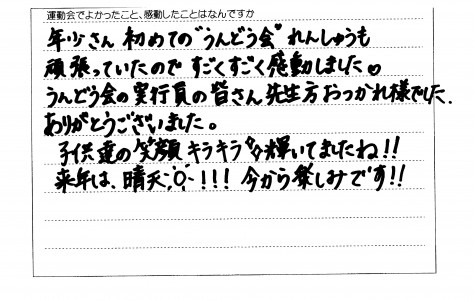 運動会でよかったこと、感動したことはなんですか
年少さん 初めての"うんどう会" れんしゅうも
頑張っていたので すごくすごく感動しました♡
うんどう会の実行員の皆さん 先生方おつかれ様でした。
ありがとうございました。
子供達の笑顔 キラキラ輝いてましたね!!
来年は、晴天!!! 今から楽しみです!!